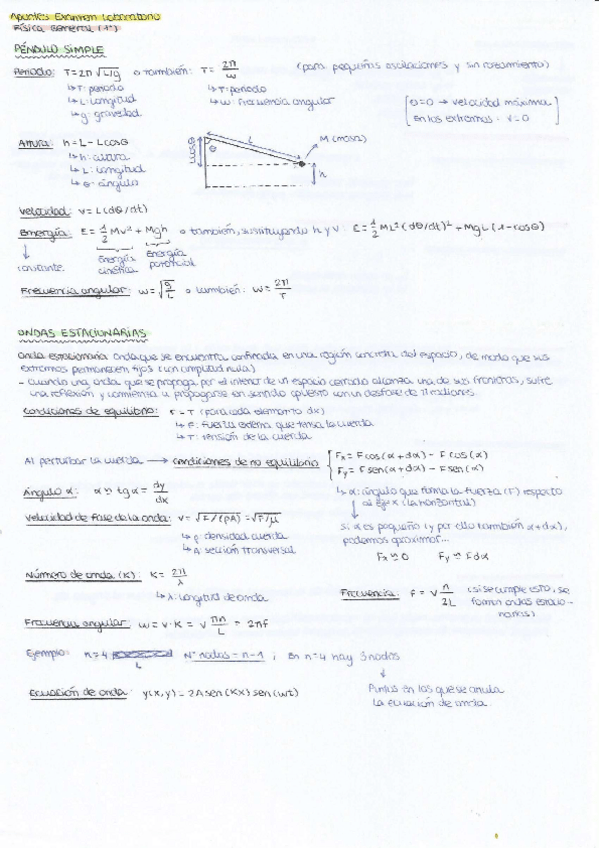 Apuntes Examen Laboratorio
Física General (1º)
PÉNDULO SIMPLE
Periodo: T=2π√L/g o también: T= 2π/ω (para pequeñas oscilaciones y sin rozamiento)
↳ T: periodo ↳ T: periodo
↳ L: longitud ↳ ω: frecuencia angular
↳ g: gravedad
[θ=0 → velocidad máxima
En los extremos: v=0]
Altura: h = L - Lcosθ
↳ h: altura
↳ L: longitud
↳ θ: ángulo
Lcosθ θ L M (masa) h
Velocidad: v = L(dθ/dt)
Energía: E = 1/2 Mv² + Mgh o también, sustituyendo h y v: E = 1/2 ML² (dθ/dt)² + MgL (1-cosθ)
↓ Energía cinética Energía potencial
constante
Frecuencia angular: ω = √g/L o también: ω = 2π/T
ONDAS ESTACIONARIAS
Onda estacionaria: Onda que se encuentra confinada en una región concreta del espacio, de modo que sus
extremos permanecen fijos (con amplitud nula)
- Cuando una onda que se propaga por el interior de un espacio cerrado alcanza una de sus fronteras, sufre
una reflexión y comienza a propagarse en sentido opuesto con un desfase de π radianes.
Condiciones de equilibrio: F = T (para cada elemento dx)
↳ F: fuerza externa que tensa la cuerda
↳ T: tensión de la cuerda
Al perturbar la cuerda → Condiciones de no equilibrio { Fx = F cos(α+dα) - F cos(α)
Fy = F sen(α+dα) - F sen(α)
Ángulo α: α ≈ tgα = dy/dx
↳ α: ángulo que forma la fuerza (F) respecto
al eje x (la horizontal)
Velocidad de fase de la onda: v = √F/(ρA) = √F/μ
↳ ρ: densidad cuerda
↳ A: sección transversal
si α es pequeño (y por ello también α+dα),
podemos aproximar...
Fx ≈ 0 Fy ≈ Fdα
Número de onda (K): K = 2π/λ
↳ λ: longitud de onda
Frecuencia: f = v n/2L (si se cumple esto, se
forman ondas estacio-
narias)
Frecuencia angular: ω = v·K = v πn/L = 2πf
Ejemplo: n=4 Nº nodos = n-1 ; En n=4 hay 3 nodos
L
↓
Puntos en los que se anula
la ecuación de onda
Ecuación de onda: y(x,y) = 2A sen(Kx) sen(ωt)